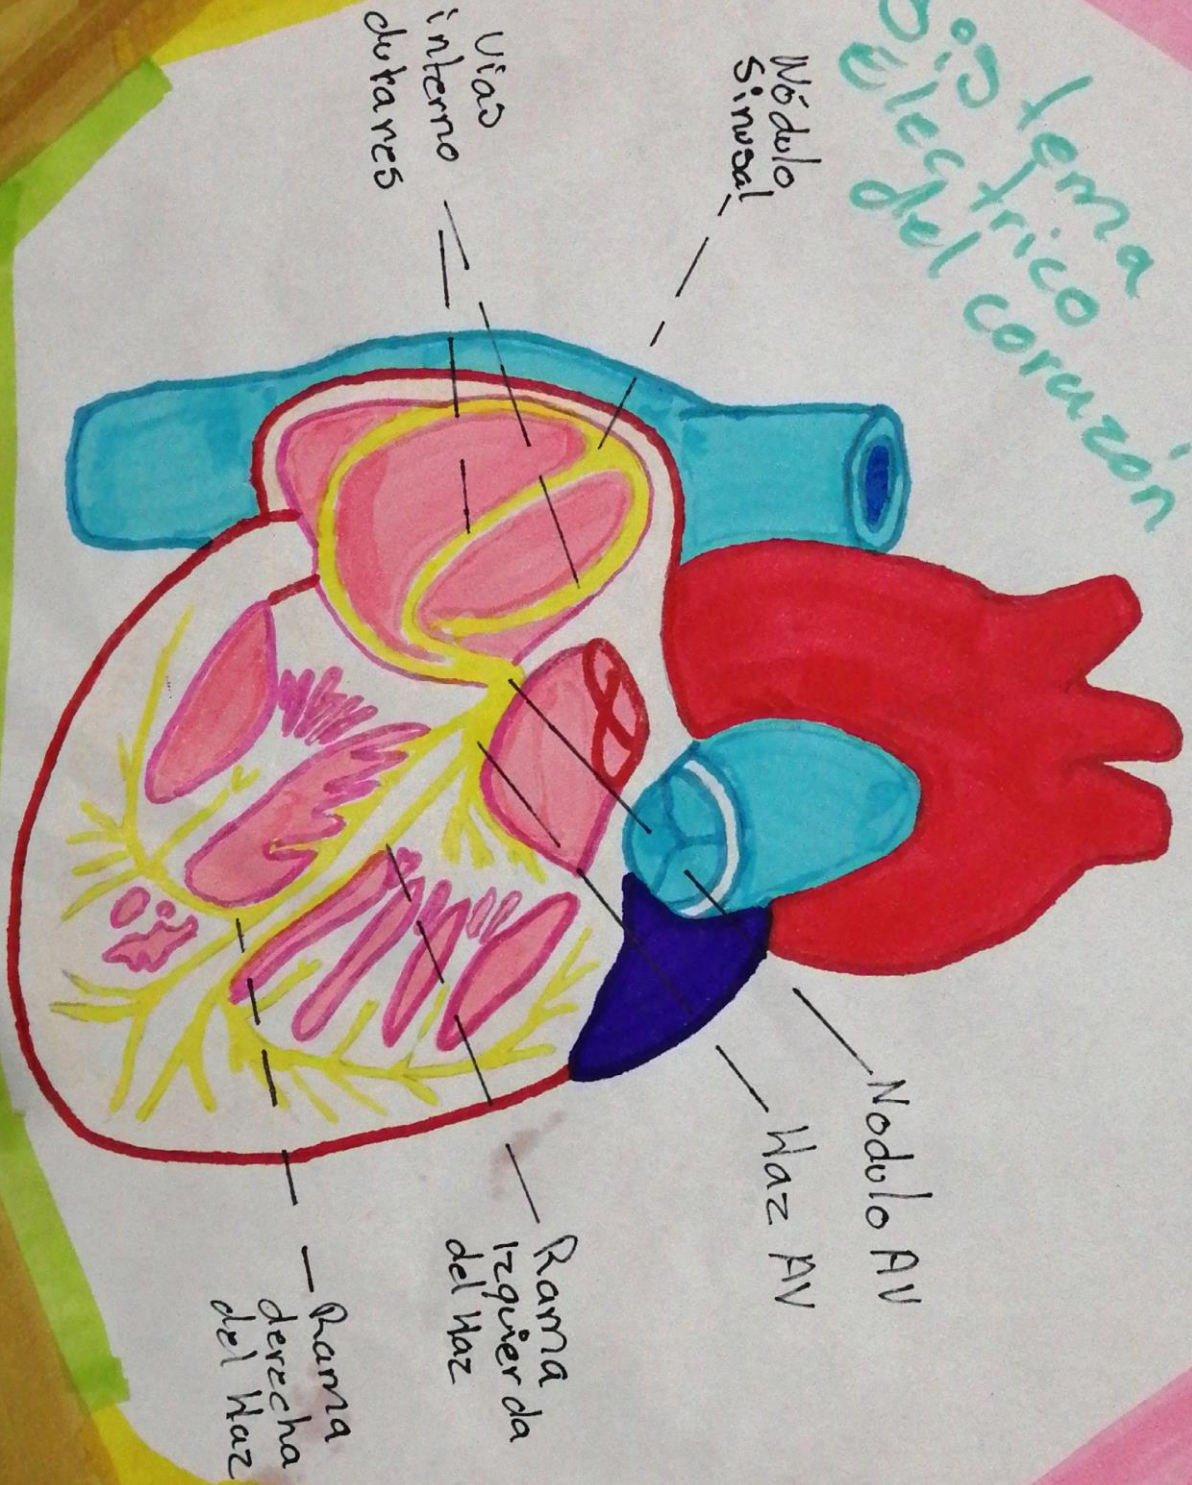 Sistema
Eléctrico
del corazón
Nódulo
Sinusal
Vías
interno
durares
Nodulo AV
Haz AV
Rama
Izquierda
del Haz
Rama
derecha
del Haz